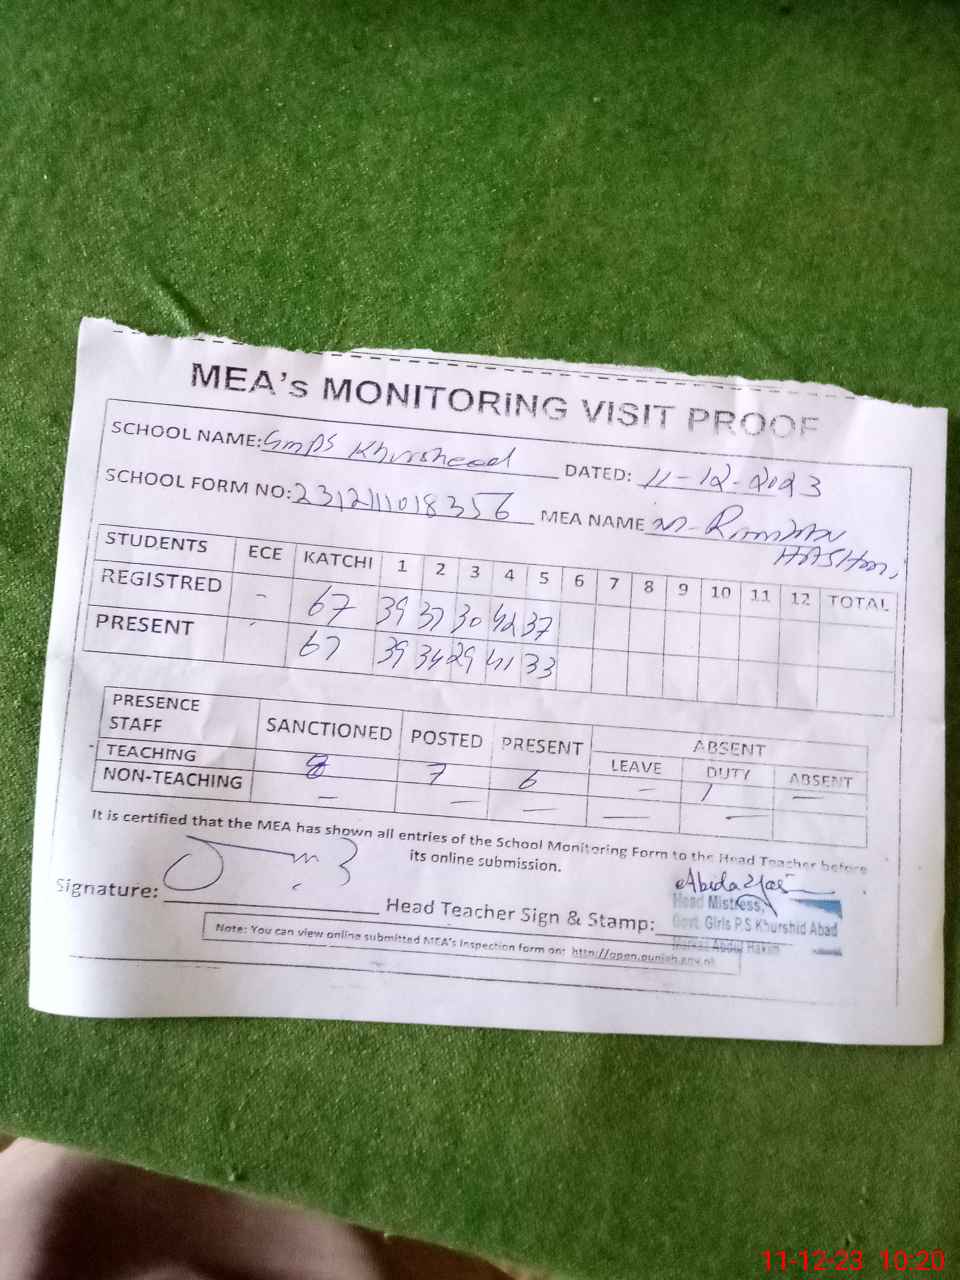 MEA's MONITORING VISIT PROOF
SCHOOL NAME: GmPS Khursheed DATED: 11-12-2023
SCHOOL FORM NO: 231211018356 MEA NAME m-
STUDENTS ECE KATCHI 1 2 3 4 5 6 7 8 9 10 11 12 TOTAL
REGISTRED - 67 39 37 30 42 37
PRESENT 67 39 34 29 41 33
PRESENCE STAFF SANCTIONED POSTED PRESENT ABSENT
LEAVE DUTY ABSENT
TEACHING 8 7 6 - 1 -
NON-TEACHING - - - - - -
It is certified that the MEA has shown all entries of the School Monitoring Form to the Head Teacher before
its online submission.
Signature: Head Teacher Sign & Stamp: Abida
Head Mistress,
Govt. Girls P.S Khurshid Abad
Markaz Abdul Hakim
Note: You can view online submitted MEA's inspection form on: http://open.punjab.gov.pk
11-12-23 10:20